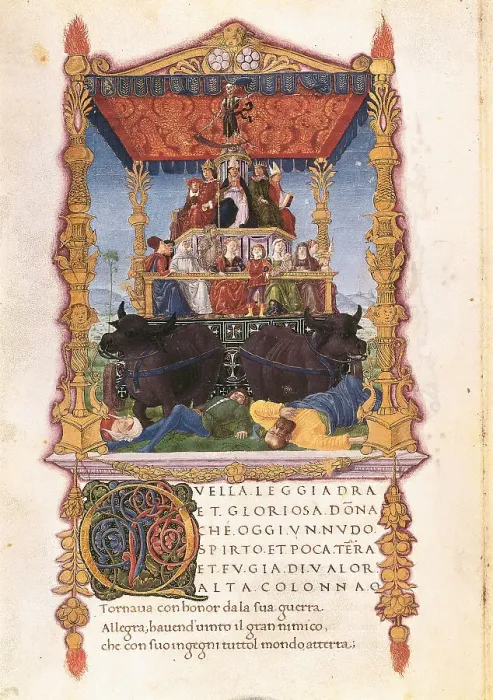 QVELLA.LEGGIADRA
ET.GLORIOSA.DŌNA
CHE.OGGI.VN.NVDO.
SPIRTO.ET.POCA.TĒRA
ET.FV.GIA.DI.VALOR.
ALTA.COLONNA
Tornaua con honor dala sua guerra.
Allegra, hauend'uinto il gran nimico,
che con suo ingegni tuttol mondo atterra;